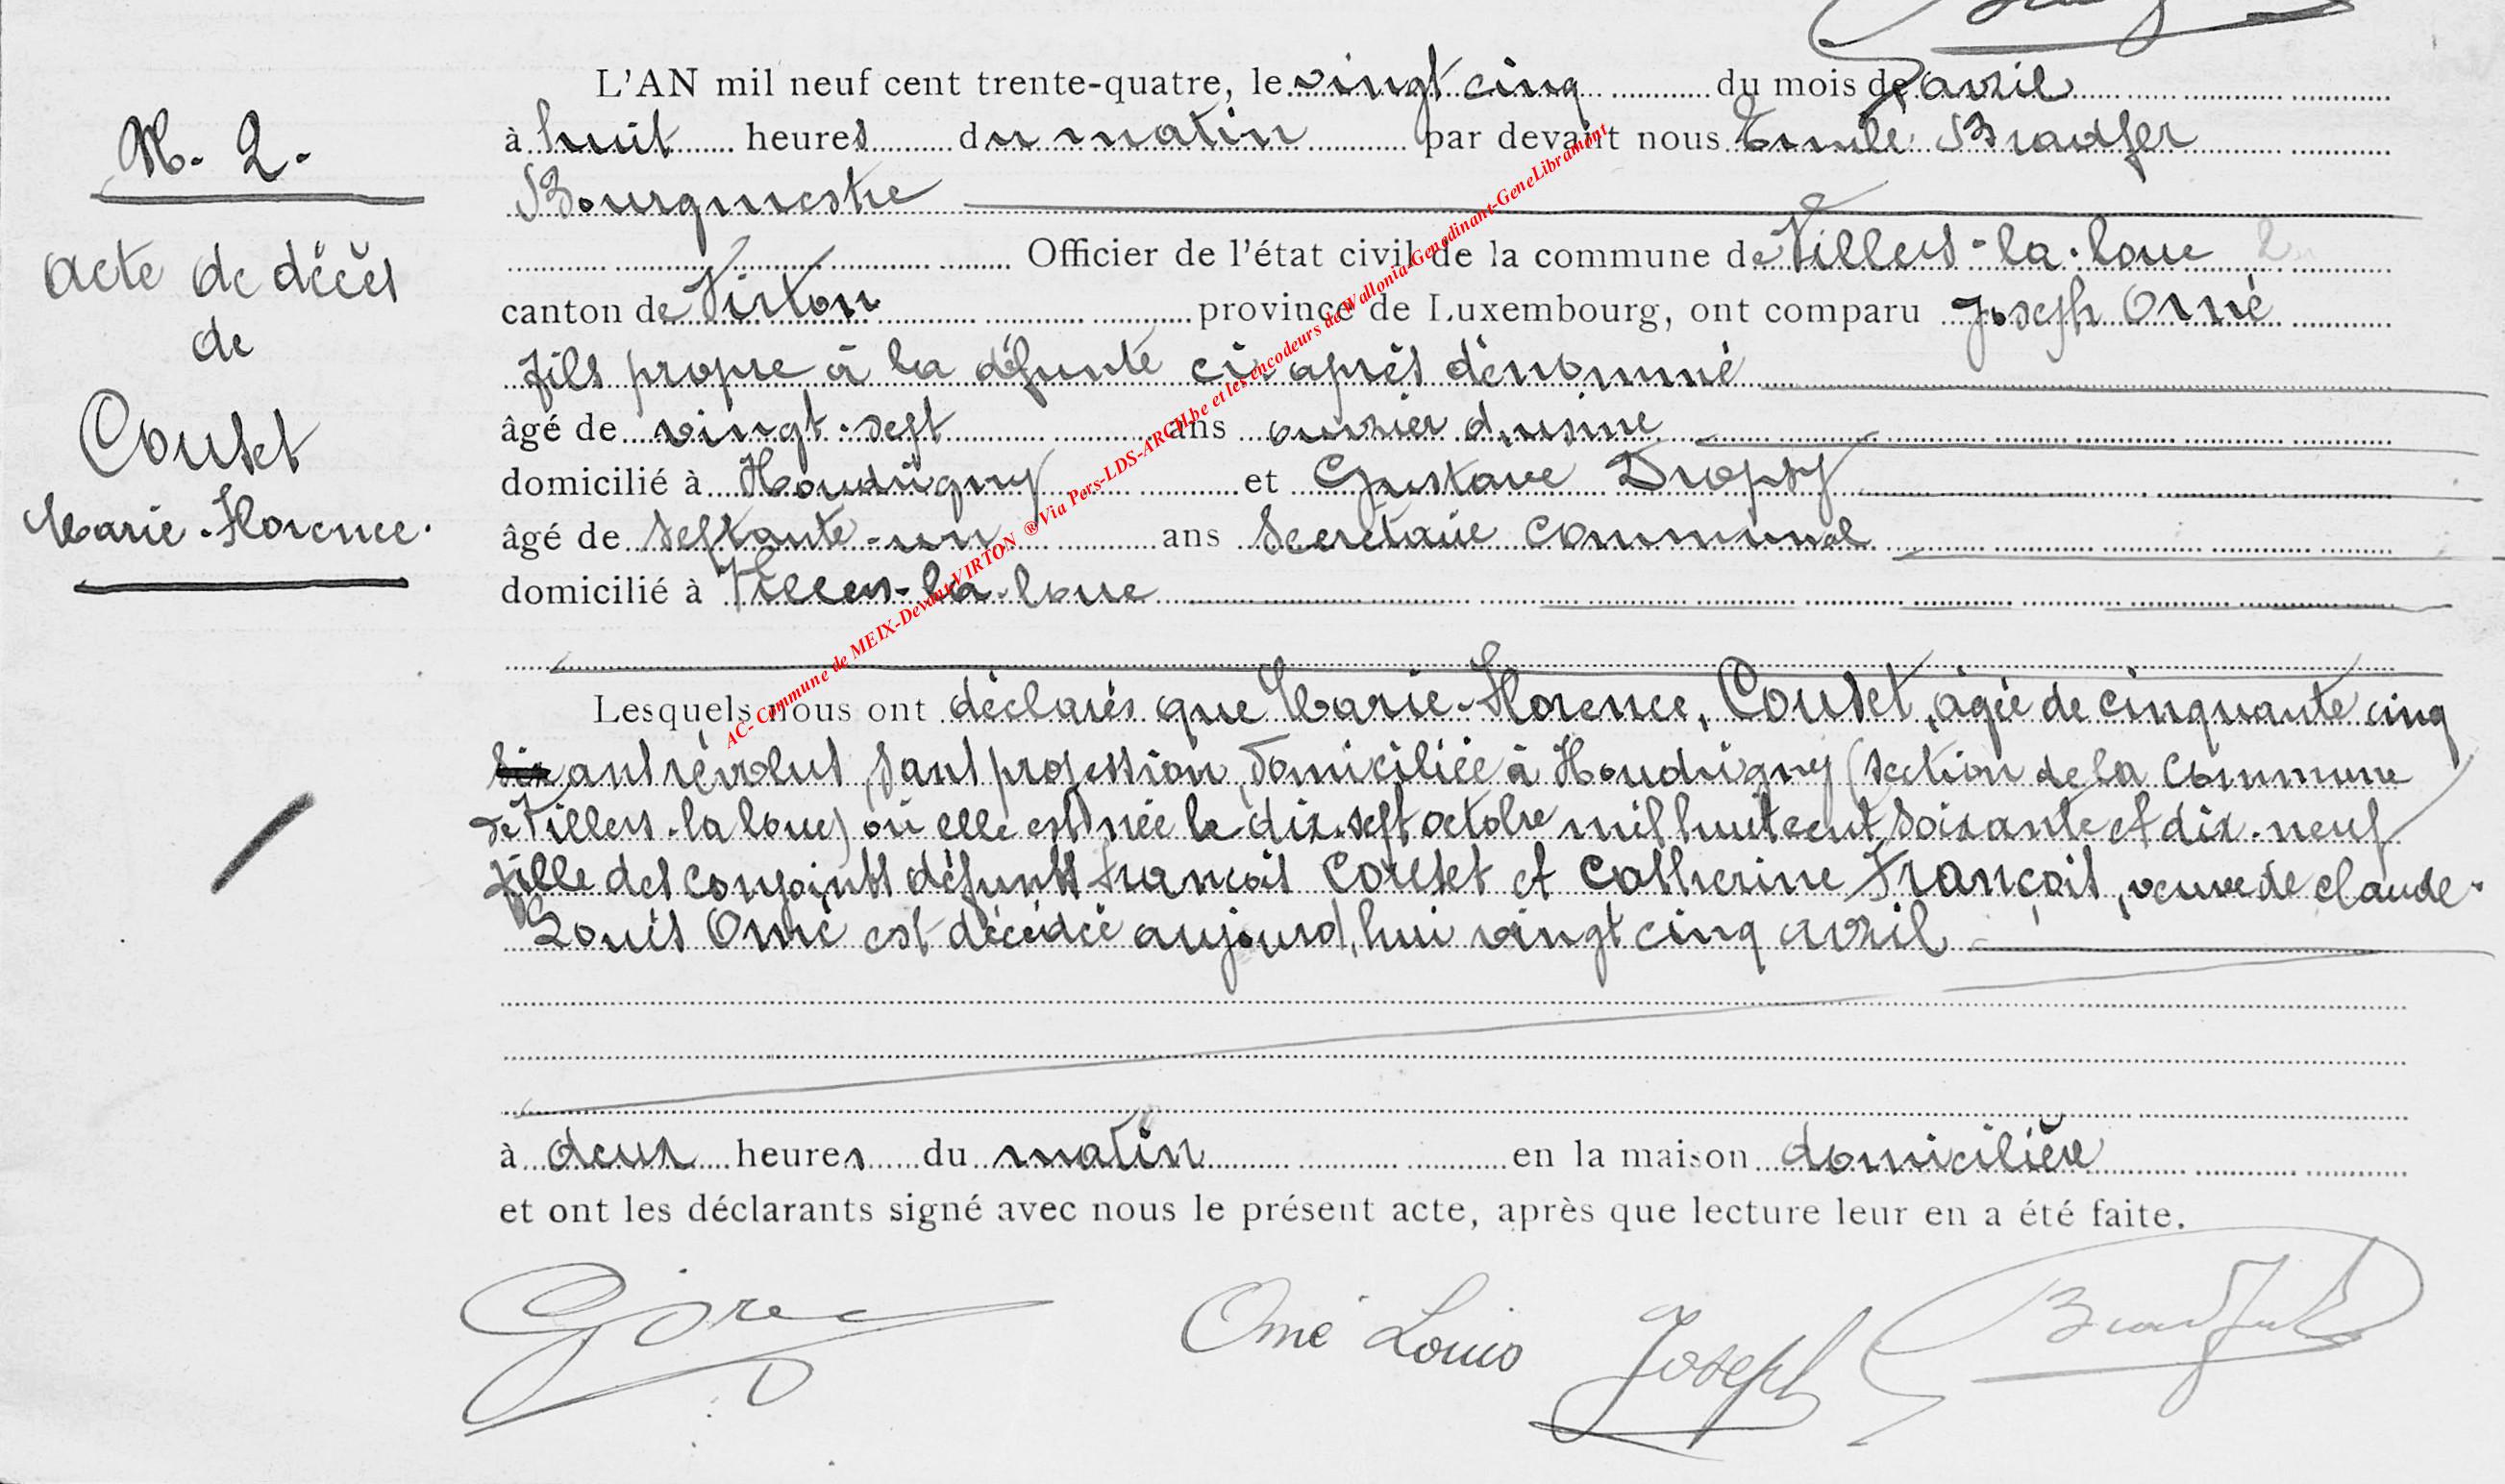 L'AN mil neuf cent trente-quatre, le vingt cinq du mois de avril
N. 2.
à huit heures du matin par devant nous Emile Bradfer
Bourgmestre
Officier de l'état civil de la commune de Villers-la-loue
acte de décès
canton de Virton province de Luxembourg, ont comparu Joseph Omé
de
fils propre à la défunte ci-après dénommé
Couset
âgé de vingt-sept ans ouvrier d'usine
domicilié à Houdrigny et Gustave Dropsy
Marie-Florence.
âgé de septante-un ans Secrétaire Communal
domicilié à Villers-la-loue
Lesquels nous ont déclarés que Marie-Florence, Couset, âgée de cinquante cinq
ans révolus, sans profession, domiciliée à Houdrigny (section de la Commune
de Villers-la loue) où elle est née le dix-sept octobre mil huit cent soixante et dix-neuf
fille des conjoints défunts François Couset et Catherine François, veuve de Claude-
Louis Omé est décédée aujourd'hui vingt cinq avril
à deux heures du matin en la maison domicilière
et ont les déclarants signé avec nous le présent acte, après que lecture leur en a été faite.
Omé Louis Joseph Bradfer
AC- Commune de MEIX-Devant-VIRTON ® Via Pers-LDS-ARCH.be et les encodeurs de Wallonia-Genedinant-GeneLibramont